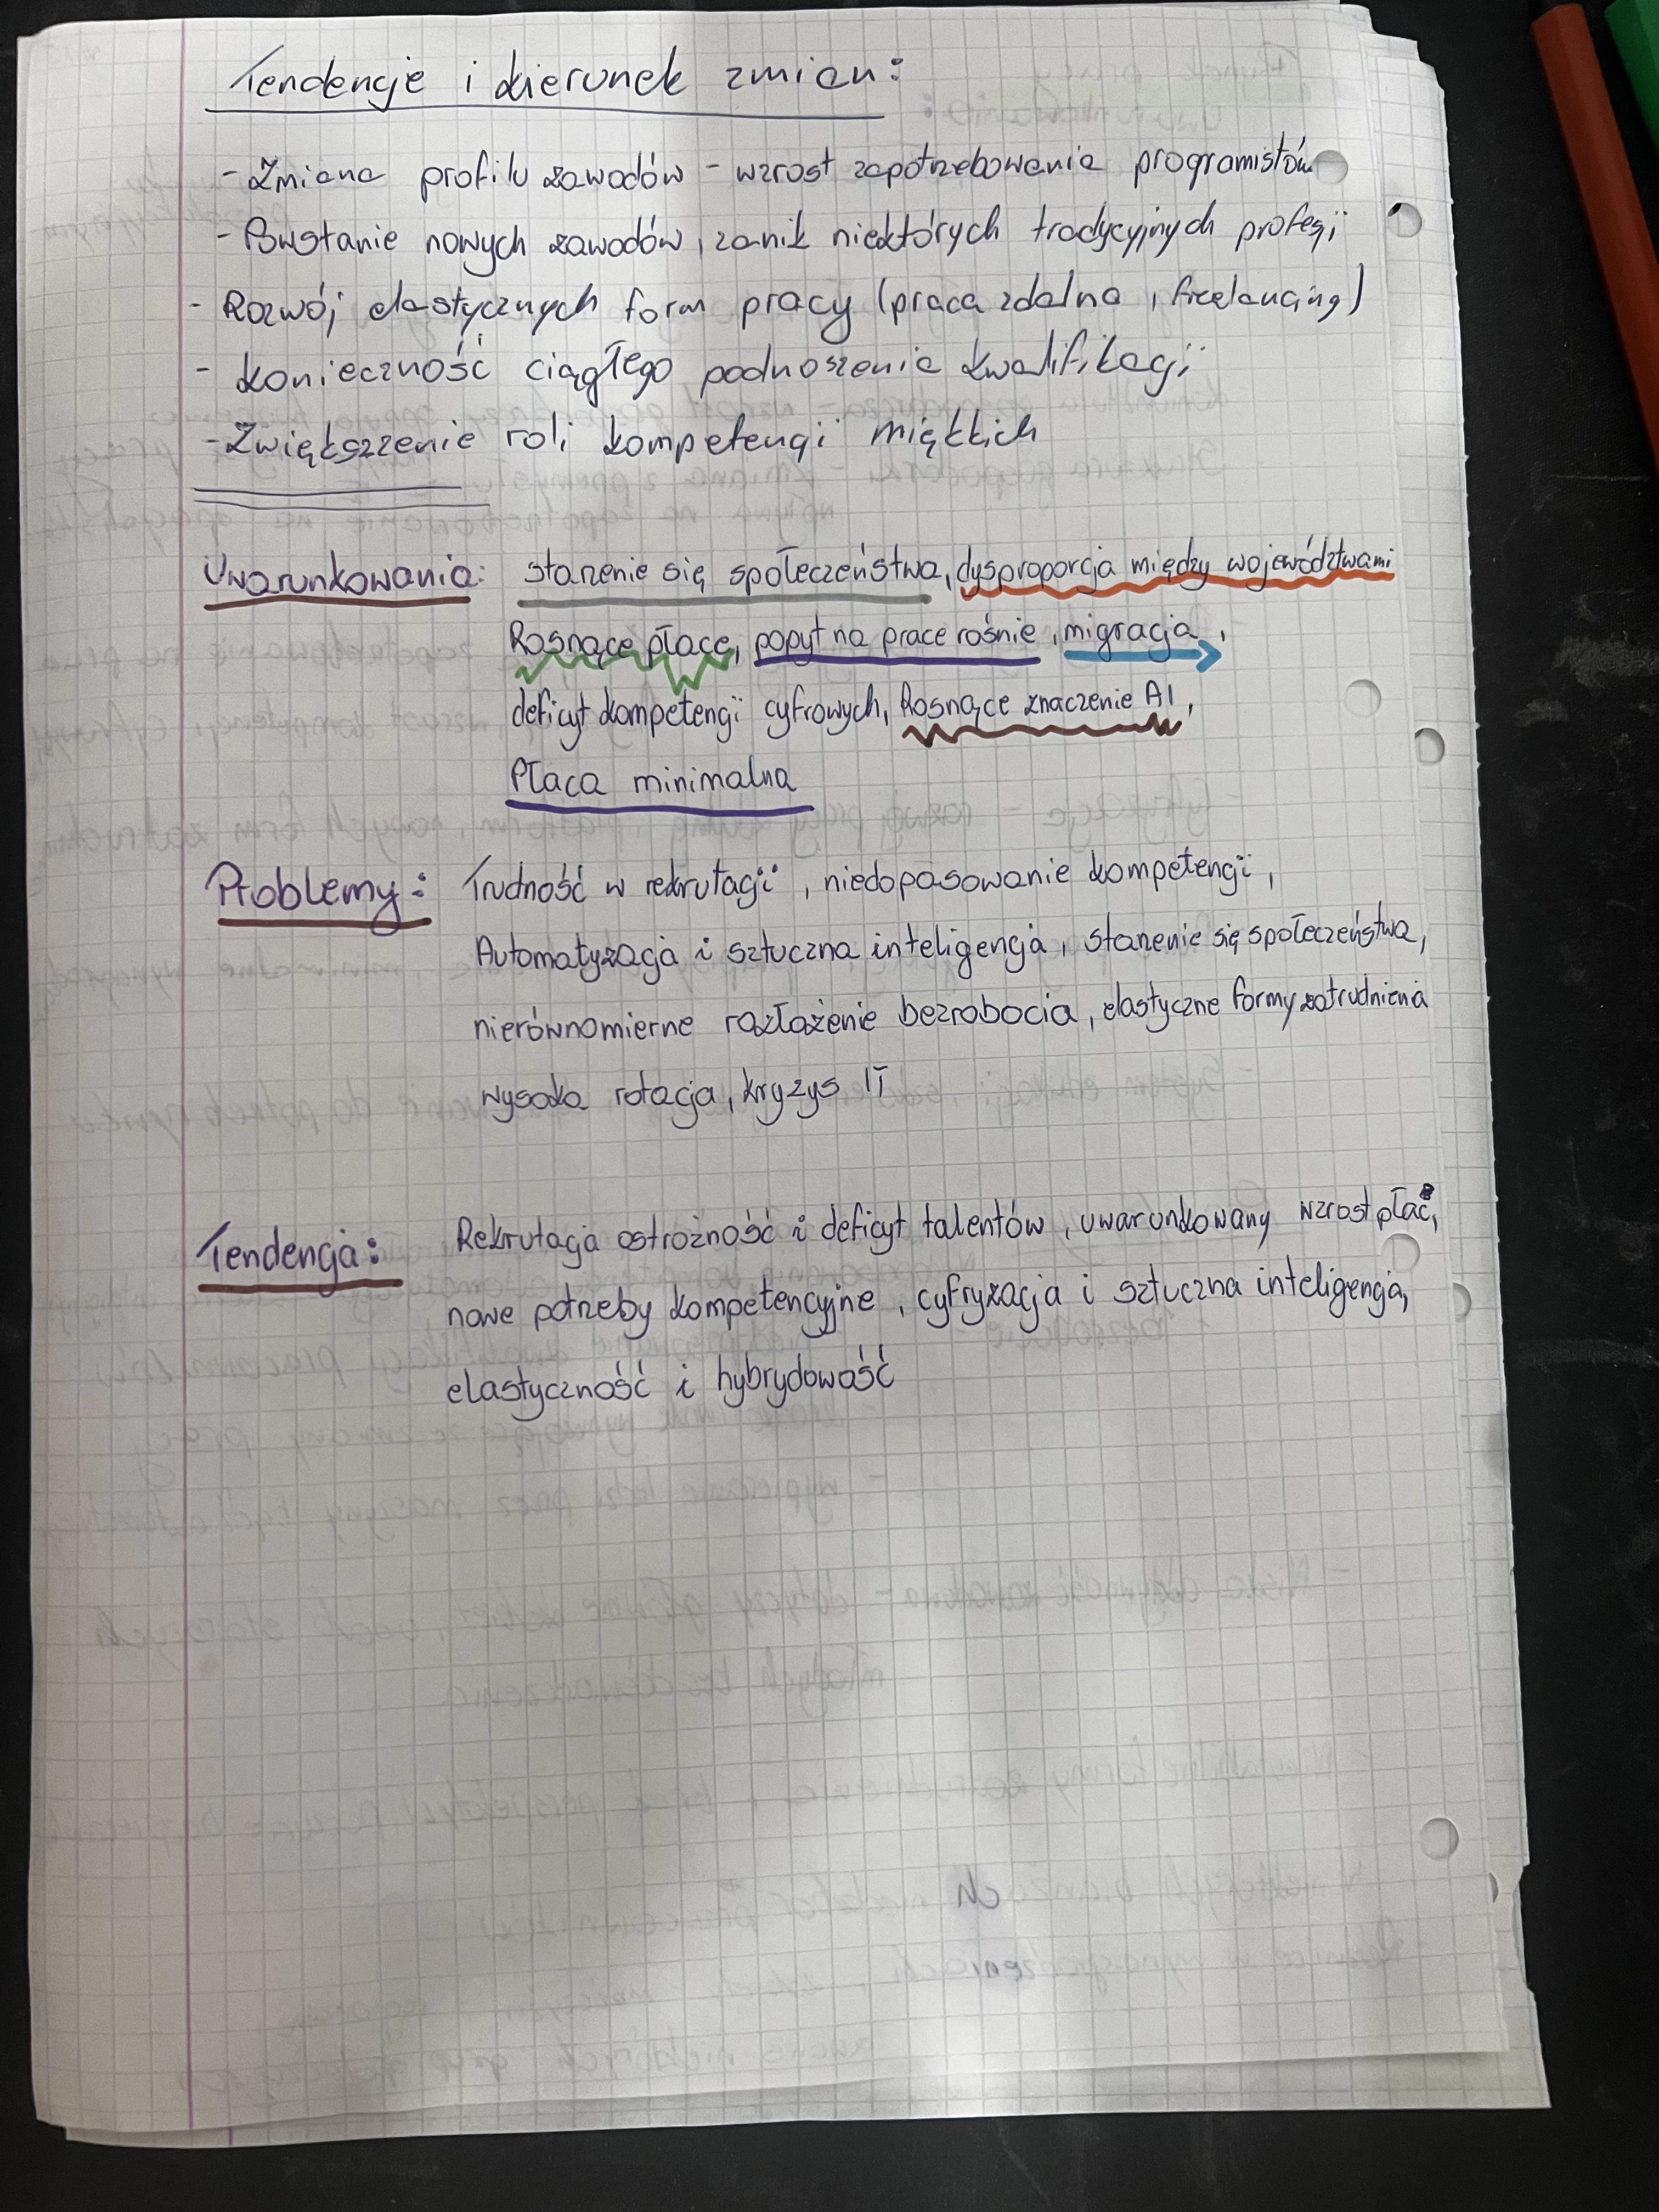 Tendencje i kierunek zmian:
- Zmiana profilu zawodów - wzrost zapotrzebowania programistów
- Powstanie nowych zawodów, zanik niektórych tradycyjnych profesji
- Rozwój elastycznych form pracy (praca zdalna, freelancing)
- konieczność ciągłego podnoszenia kwalifikacji
- Zwiększenie roli kompetencji miękkich
Uwarunkowania: starzenie się społeczeństwa, dysproporcja między województwami
Rosnące płace, popyt na prace rośnie, migracja,
deficyt kompetencji cyfrowych, Rosnące znaczenie AI,
Płaca minimalna
Problemy: Trudność w rekrutacji, niedopasowanie kompetencji,
Automatyzacja i sztuczna inteligencja, starzenie się społeczeństwa,
nierównomierne rozłożenie bezrobocia, elastyczne formy zatrudnienia
wysoka rotacja, kryzys IT
Tendencja: Rekrutacja ostrożność i deficyt talentów, uwarunkowany wzrost płac,
nowe potrzeby kompetencyjne, cyfryzacja i sztuczna inteligencja,
elastyczność i hybrydowość